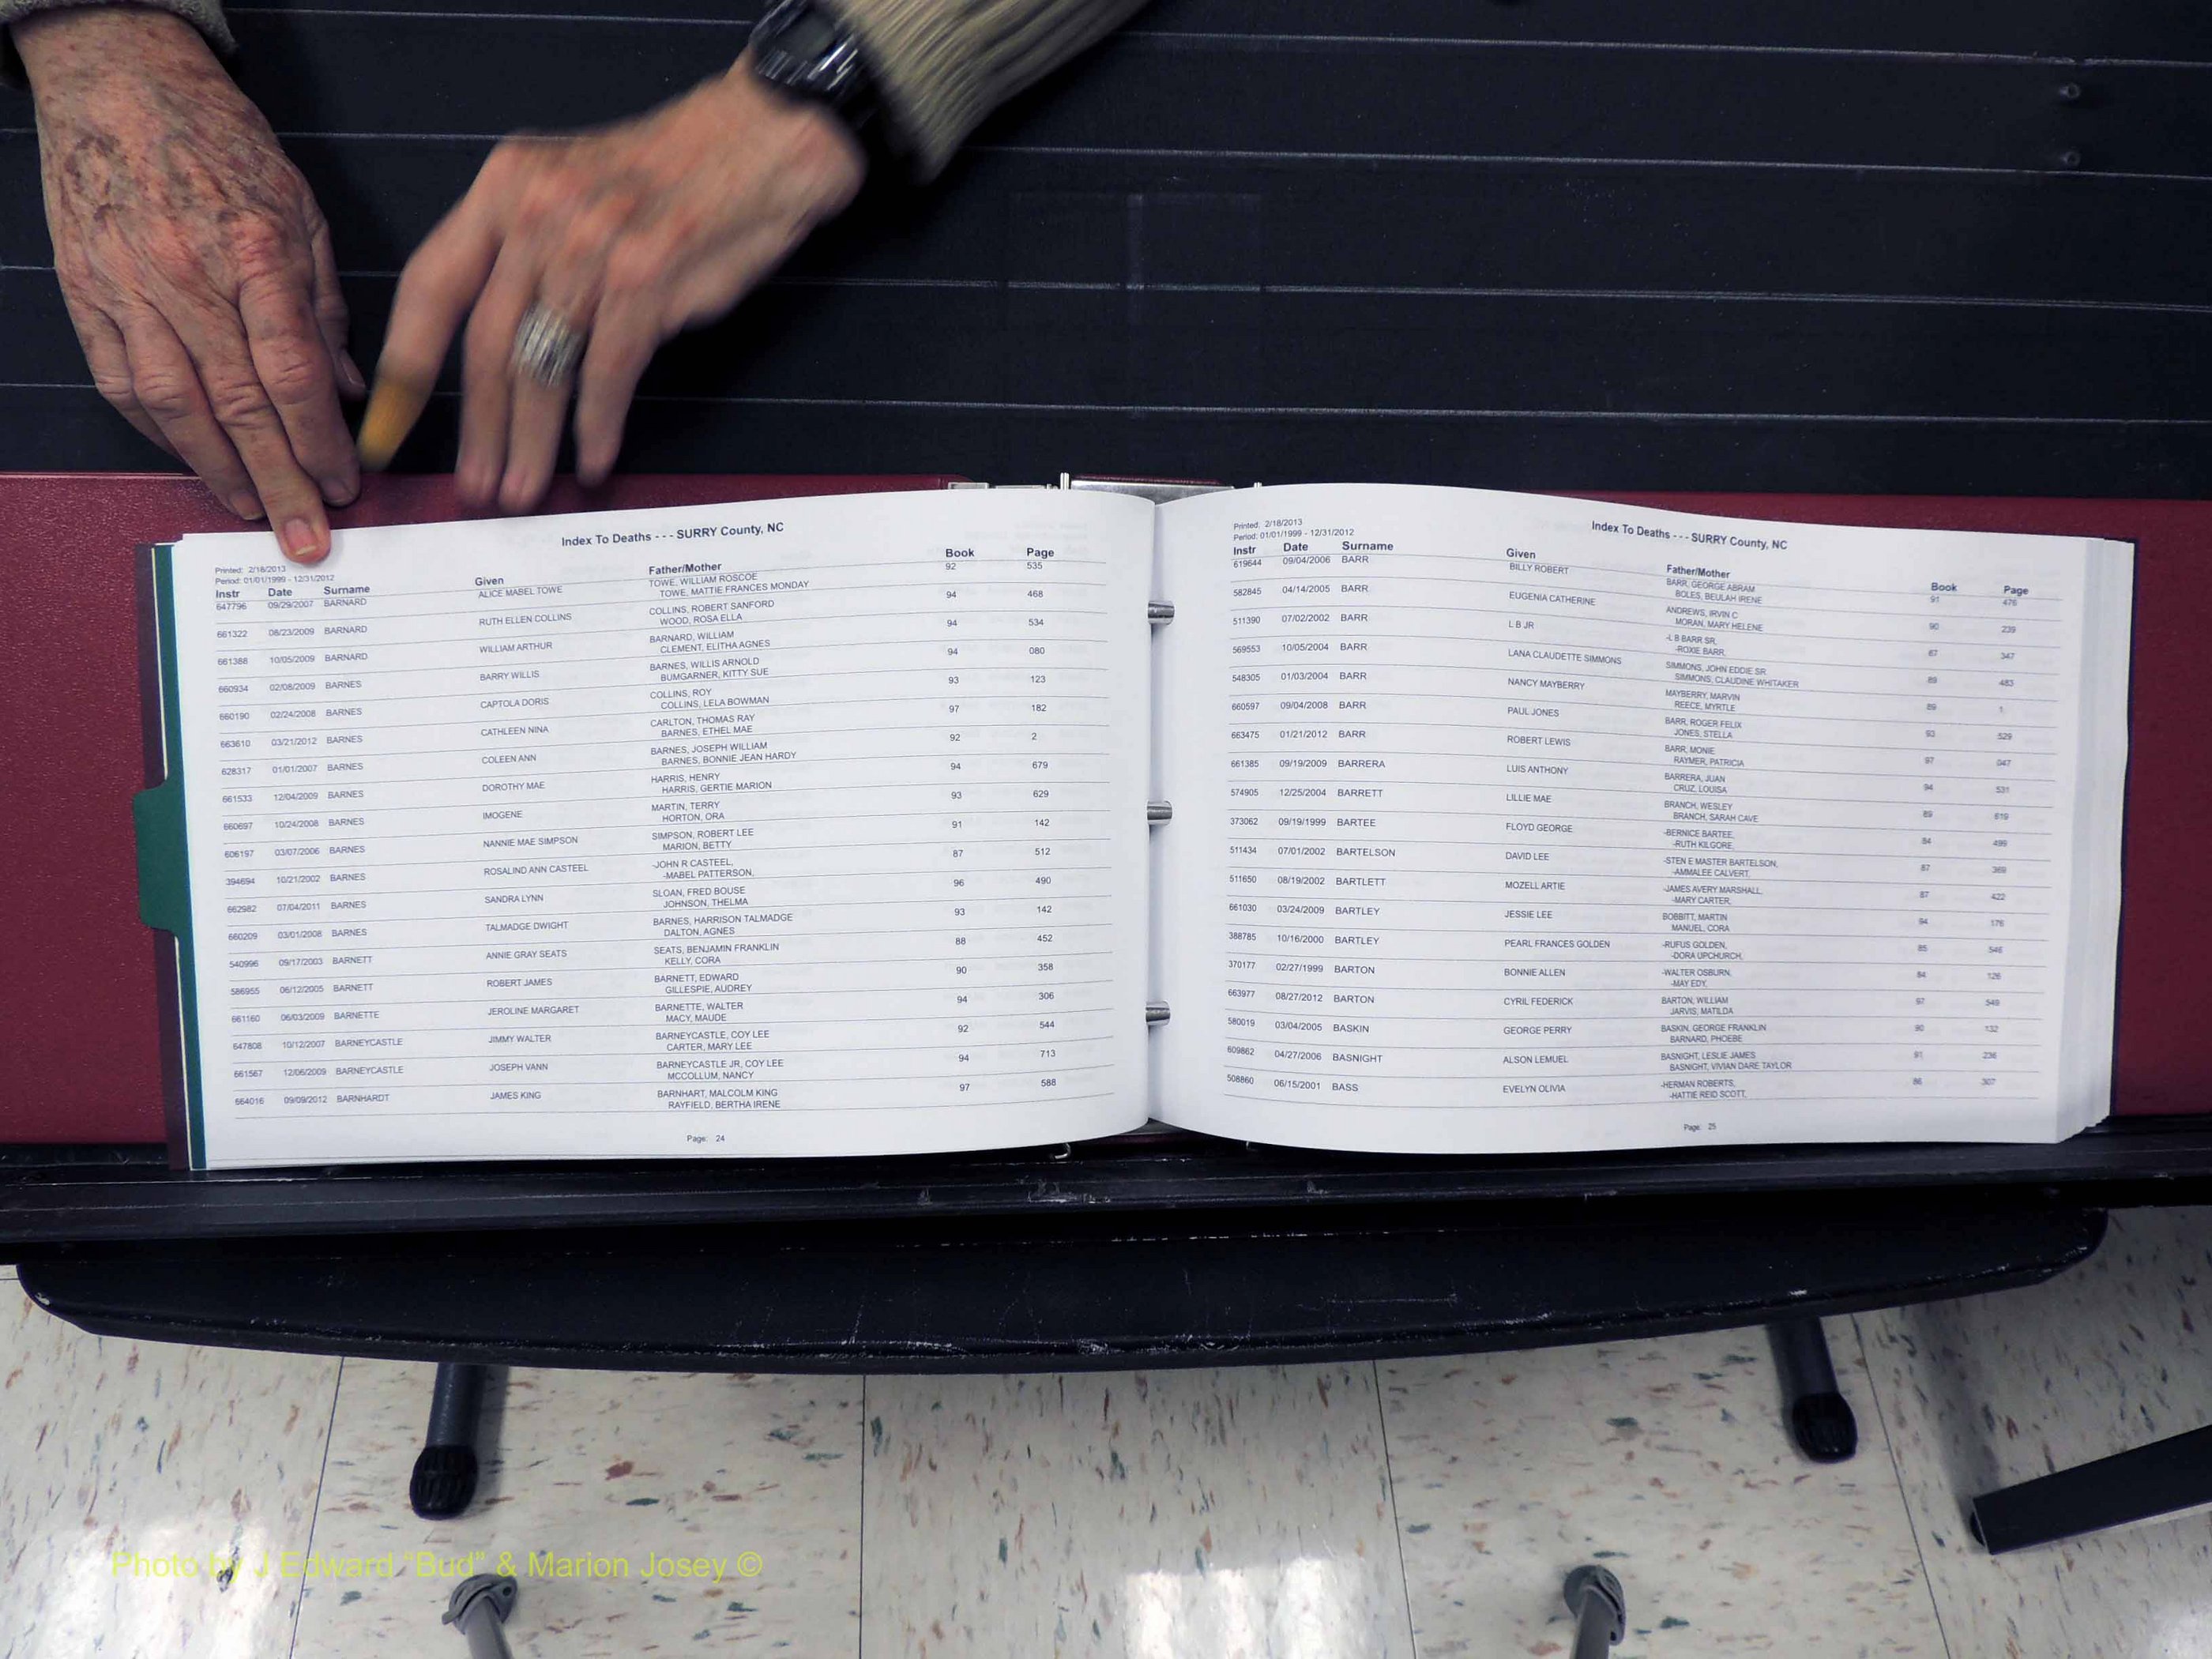 Index To Deaths - - - SURRY County, NC
Printed: 2/18/2013
Period: 01/01/1999 - 12/31/2012
Instr Date Surname Given Father/Mother Book Page
647796 09/29/2007 BARNARD ALICE MABEL TOWE TOWE, WILLIAM ROSCOE 92 535
TOWE, MATTIE FRANCES MONDAY
661322 08/23/2009 BARNARD RUTH ELLEN COLLINS COLLINS, ROBERT SANFORD 94 468
WOOD, ROSA ELLA
661388 10/05/2009 BARNARD WILLIAM ARTHUR BARNARD, WILLIAM 94 534
CLEMENT, ELITHA AGNES
660934 02/08/2009 BARNES BARRY WILLIS BARNES, WILLIS ARNOLD 94 080
BUMGARNER, KITTY SUE
660190 02/24/2008 BARNES CAPTOLA DORIS COLLINS, ROY 93 123
COLLINS, LELA BOWMAN
663610 03/21/2012 BARNES CATHLEEN NINA CARLTON, THOMAS RAY 97 182
BARNES, ETHEL MAE
628317 01/01/2007 BARNES COLEEN ANN BARNES, JOSEPH WILLIAM 92 2
BARNES, BONNIE JEAN HARDY
661533 12/04/2009 BARNES DOROTHY MAE HARRIS, HENRY 94 679
HARRIS, GERTIE MARION
660697 10/24/2008 BARNES IMOGENE MARTIN, TERRY 93 629
HORTON, ORA
606197 03/07/2006 BARNES NANNIE MAE SIMPSON SIMPSON, ROBERT LEE 91 142
MARION, BETTY
394694 10/21/2002 BARNES ROSALIND ANN CASTEEL -JOHN R CASTEEL, 87 512
-MABEL PATTERSON,
662982 07/04/2011 BARNES SANDRA LYNN SLOAN, FRED BOUSE 96 490
JOHNSON, THELMA
660209 03/01/2008 BARNES TALMADGE DWIGHT BARNES, HARRISON TALMADGE 93 142
DALTON, AGNES
540996 09/17/2003 BARNETT ANNIE GRAY SEATS SEATS, BENJAMIN FRANKLIN 88 452
KELLY, CORA
586955 06/12/2005 BARNETT ROBERT JAMES BARNETT, EDWARD 90 358
GILLESPIE, AUDREY
661160 06/03/2009 BARNETTE JEROLINE MARGARET BARNETTE, WALTER 94 306
MACY, MAUDE
647808 10/12/2007 BARNEYCASTLE JIMMY WALTER BARNEYCASTLE, COY LEE 92 544
CARTER, MARY LEE
661567 12/06/2009 BARNEYCASTLE JOSEPH VANN BARNEYCASTLE JR, COY LEE 94 713
MCCOLLUM, NANCY
664016 09/09/2012 BARNHARDT JAMES KING BARNHART, MALCOLM KING 97 588
RAYFIELD, BERTHA IRENE
Page: 24
Index To Deaths - - - SURRY County, NC
Printed: 2/18/2013
Period: 01/01/1999 - 12/31/2012
Instr Date Surname Given Father/Mother Book Page
619644 09/04/2006 BARR BILLY ROBERT BARR, GEORGE ABRAM 91 476
BOLES, BEULAH IRENE
582845 04/14/2005 BARR EUGENIA CATHERINE ANDREWS, IRVIN C 90 239
MORAN, MARY HELENE
511390 07/02/2002 BARR L B JR -L B BARR SR, 87 347
-ROXIE BARR,
569553 10/05/2004 BARR LANA CLAUDETTE SIMMONS SIMMONS, JOHN EDDIE SR 89 483
SIMMONS, CLAUDINE WHITAKER
548305 01/03/2004 BARR NANCY MAYBERRY MAYBERRY, MARVIN 89 1
REECE, MYRTLE
660597 09/04/2008 BARR PAUL JONES BARR, ROGER FELIX 93 529
JONES, STELLA
663475 01/21/2012 BARR ROBERT LEWIS BARR, MONIE 97 047
RAYMER, PATRICIA
661385 09/19/2009 BARRERA LUIS ANTHONY BARRERA, JUAN 94 531
CRUZ, LOUISA
574905 12/25/2004 BARRETT LILLIE MAE BRANCH, WESLEY 89 619
BRANCH, SARAH CAVE
373062 09/19/1999 BARTEE FLOYD GEORGE -BERNICE BARTEE, 84 499
-RUTH KILGORE,
511434 07/01/2002 BARTELSON DAVID LEE -STEN E MASTER BARTELSON, 87 369
-AMMALEE CALVERT,
511650 08/19/2002 BARTLETT MOZELL ARTIE -JAMES AVERY MARSHALL, 87 422
-MARY CARTER,
661030 03/24/2009 BARTLEY JESSIE LEE BOBBITT, MARTIN 94 176
MANUEL, CORA
388785 10/16/2000 BARTLEY PEARL FRANCES GOLDEN -RUFUS GOLDEN, 85 546
-DORA UPCHURCH,
370177 02/27/1999 BARTON BONNIE ALLEN -WALTER OSBURN, 84 126
-MAY EDY,
663977 08/27/2012 BARTON CYRIL FEDERICK BARTON, WILLIAM 97 549
JARVIS, MATILDA
580019 03/04/2005 BASKIN GEORGE PERRY BASKIN, GEORGE FRANKLIN 90 132
BARNARD, PHOEBE
609862 04/27/2006 BASNIGHT ALSON LEMUEL BASNIGHT, LESLIE JAMES 91 236
BASNIGHT, VIVIAN DARE TAYLOR
508860 06/15/2001 BASS EVELYN OLIVIA -HERMAN ROBERTS, 86 307
-HATTIE REID SCOTT,
Page: 25
Photo by J Edward "Bud" & Marion Josey ©